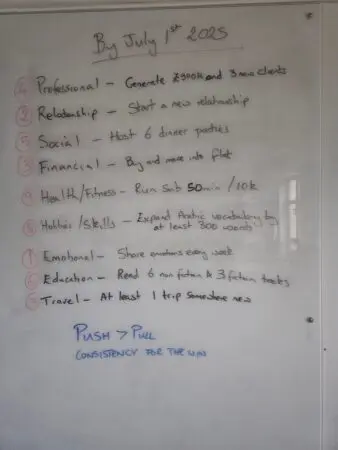 By July 1st 2025
Professional - Generate £300k and 3 new clients
② Relationship - Start a new relationship
⑤ Social - Host 6 dinner parties
③ Financial - Buy and move into flat
Health/Fitness - Run sub 50min / 10k
Hobbies/Skills - Expand Arabic vocabulary by
at least 300 words
① Emotional - Share emotions every week
⑥ Education - Read 6 non fiction & 3 fiction books
Travel - At least 1 trip somewhere new
PUSH > PULL
CONSISTENCY FOR THE WIN